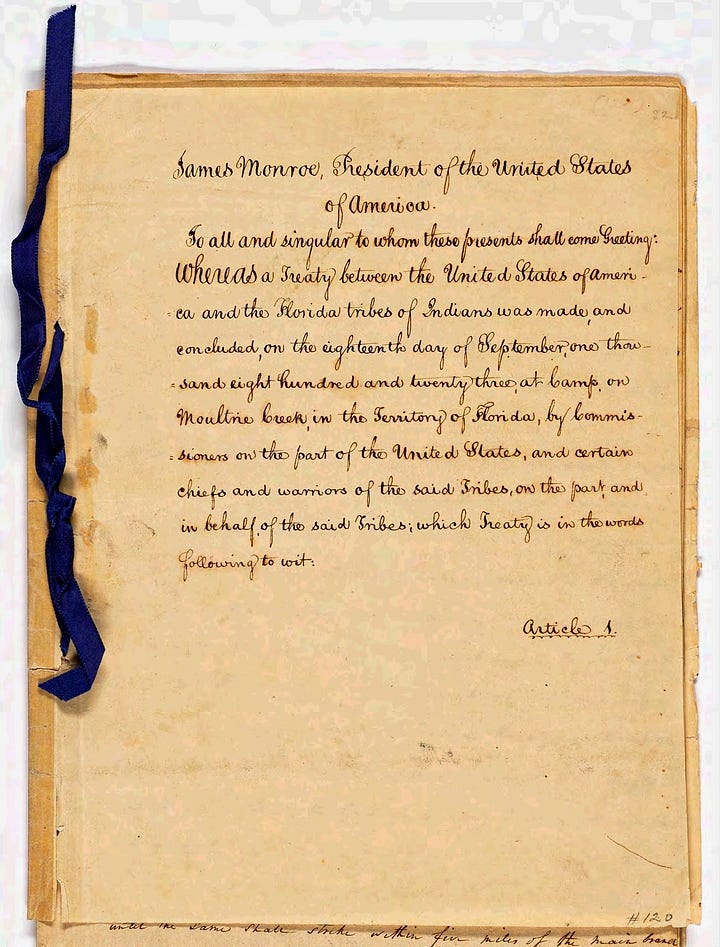 James Monroe, President of the United States
of America.
To all and singular to whom these presents shall come Greeting:
Whereas a Treaty between the United States of Ameri-
=ca and the Florida tribes of Indians was made, and
concluded, on the eighteenth day of September, one thou-
=sand eight hundred and twenty three, at Camp, on
Moultrie Creek, in the Territory of Florida, by Commis-
=sioners on the part of the United States, and certain
chiefs and warriors of the said Tribes, on the part, and
in behalf, of the said Tribes; which Treaty is in the words
following to wit:
Article 1.
#120
until the same shall strike within five miles of the main